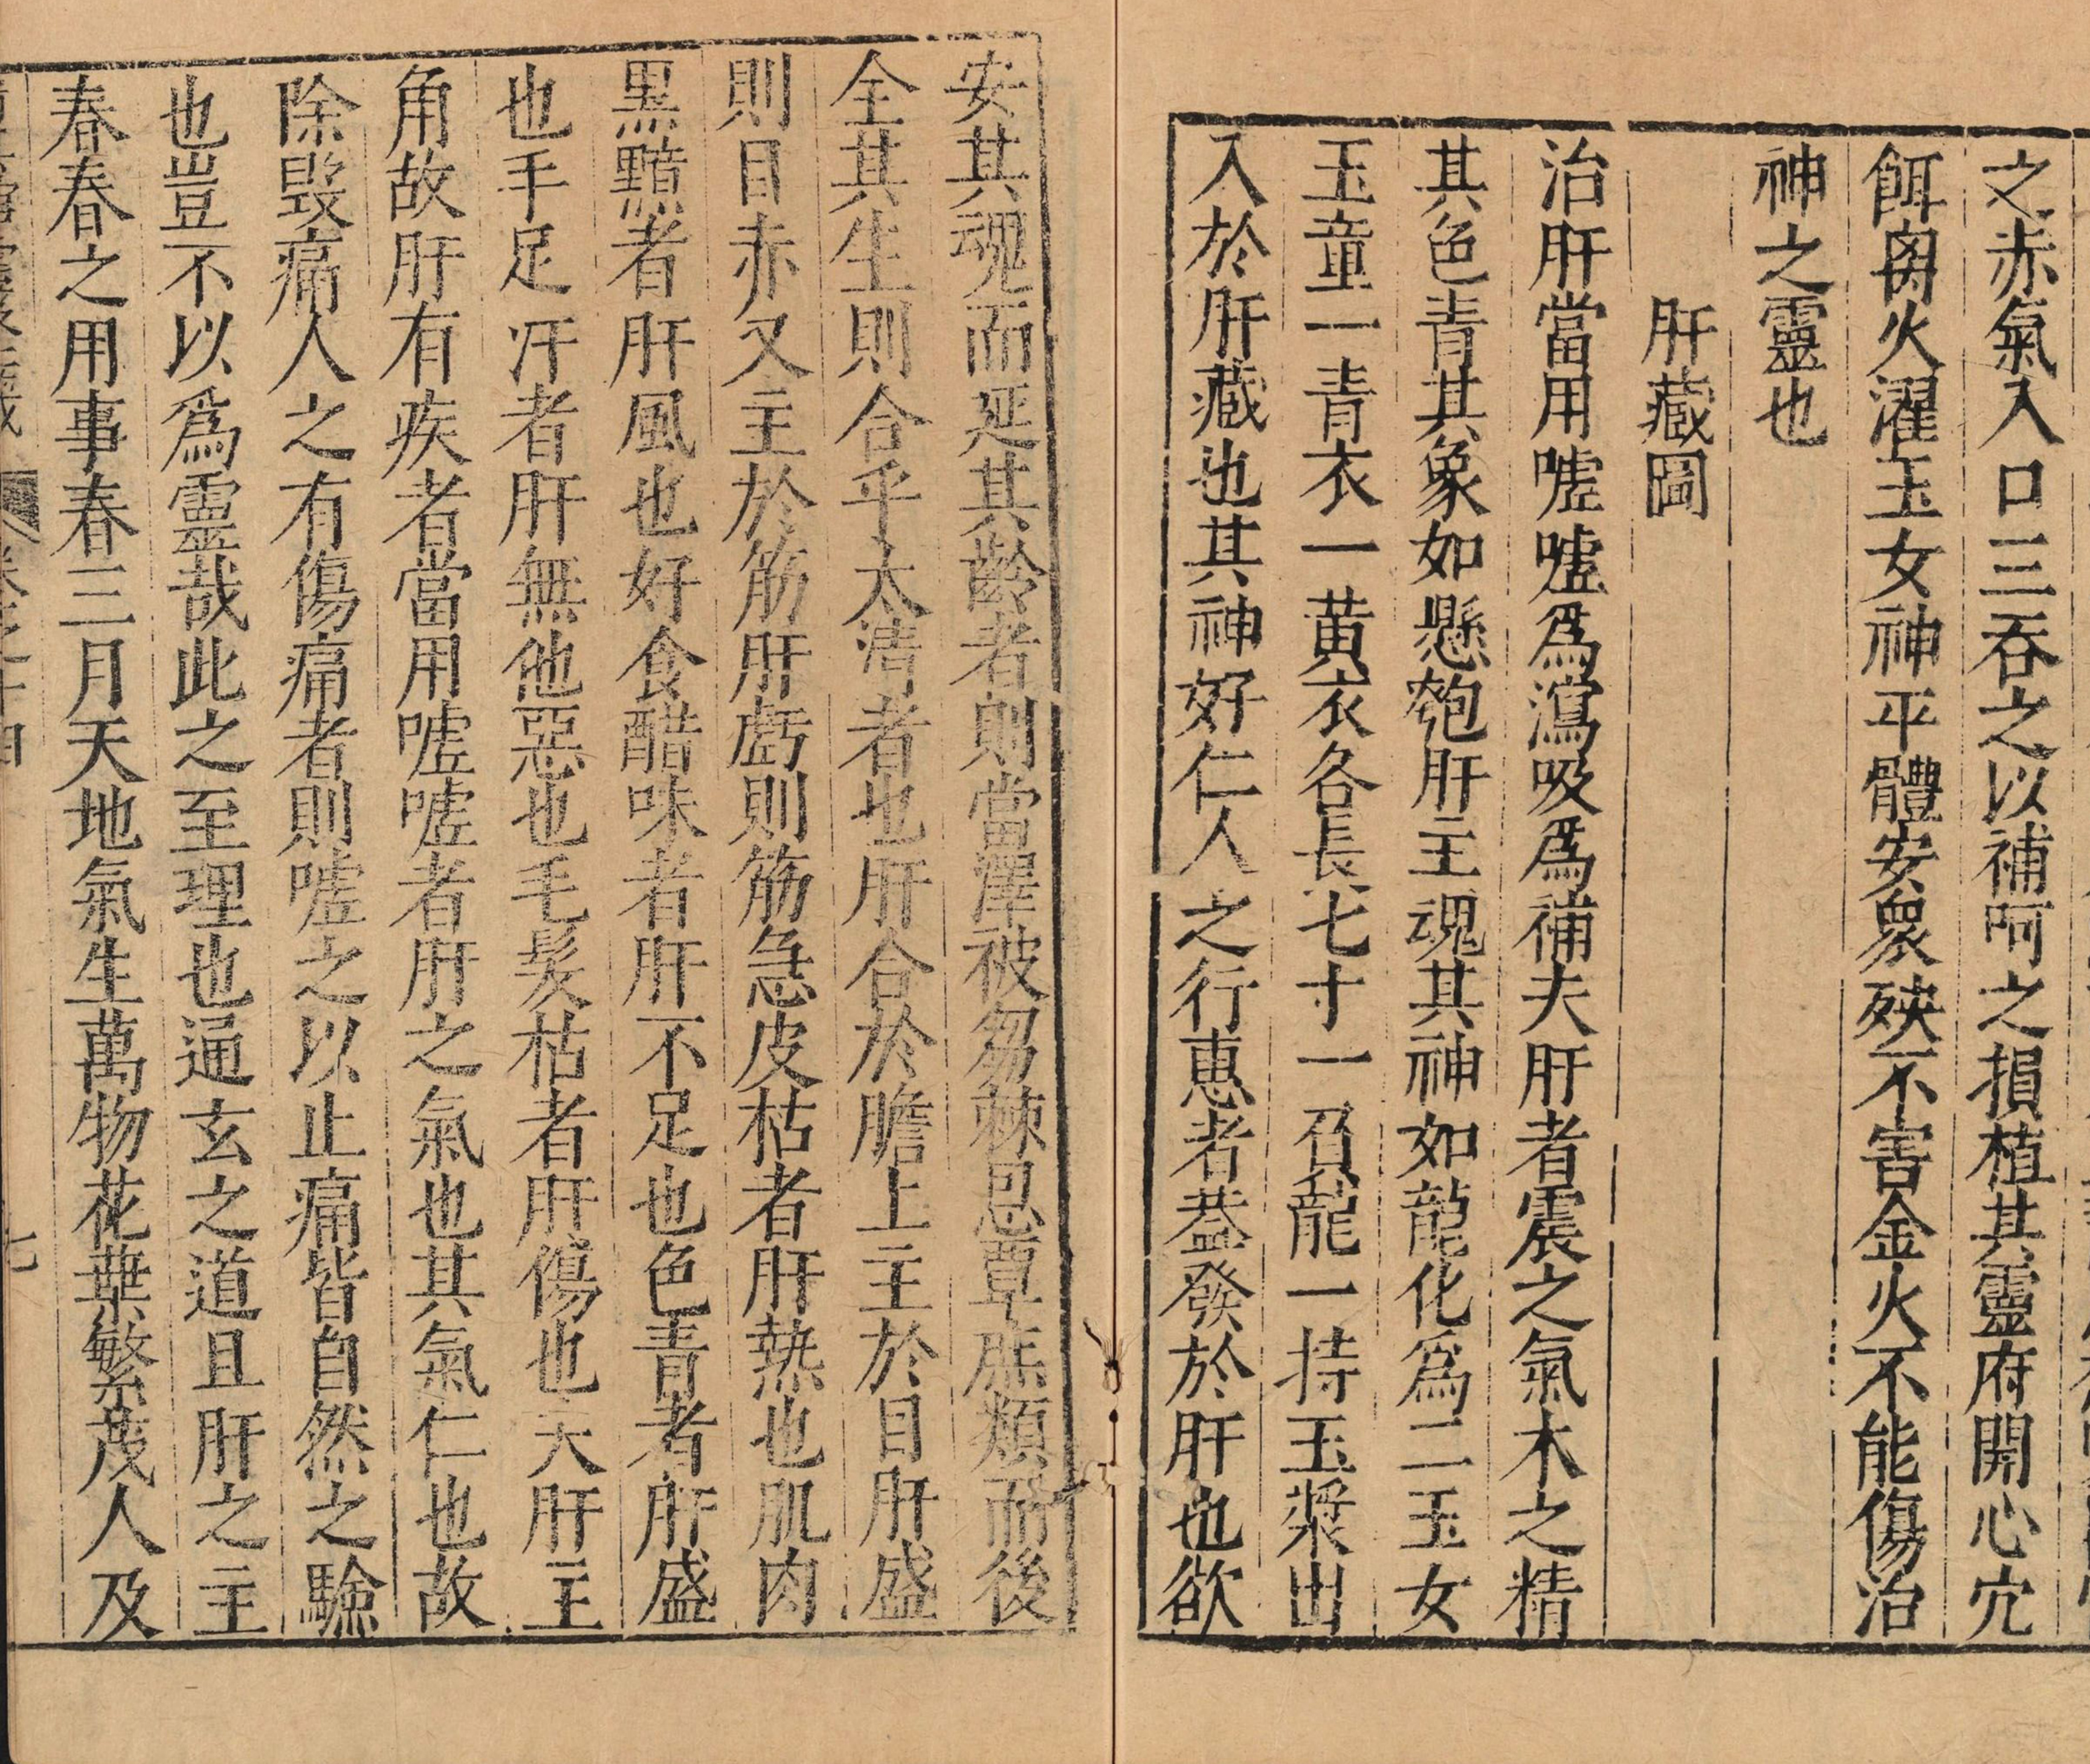 之赤氣入口三吞之以補呵之損植其靈府開心穴
餌离火濯玉女神平體安衆殃不害金火不能傷治
神之靈也
肝藏圖
治肝當用噓噓爲瀉吸爲補夫肝者震之氣木之精
其色青其象如懸匏肝主魂其神如龍化爲二玉女
玉童一青衣一黄衣各長七寸一召龍一持玉漿出
入於肝藏也其神好仁人之行惠者葢發於肝也欲
安其魂而延其齡者則當澤被芻蕘恩覃庶類而後
全其生則合乎太清者也肝合於膽上主於目肝盛
則目赤又主於筋肝虧則筋急皮枯者肝熱也肌肉
黑黯者肝風也好食醋味者肝不足也色青者肝盛
也手足汗者肝無他惡也毛髮枯者肝傷也夫肝主
角故肝有疾者當用噓噓者肝之氣也其氣仁也故
除毀痛人之有傷痛者則噓之以止痛皆自然之驗
也豈不以爲靈哉此之至理也通玄之道且肝之主
春春之用事春三月天地氣生萬物花葉繁茂人及
七